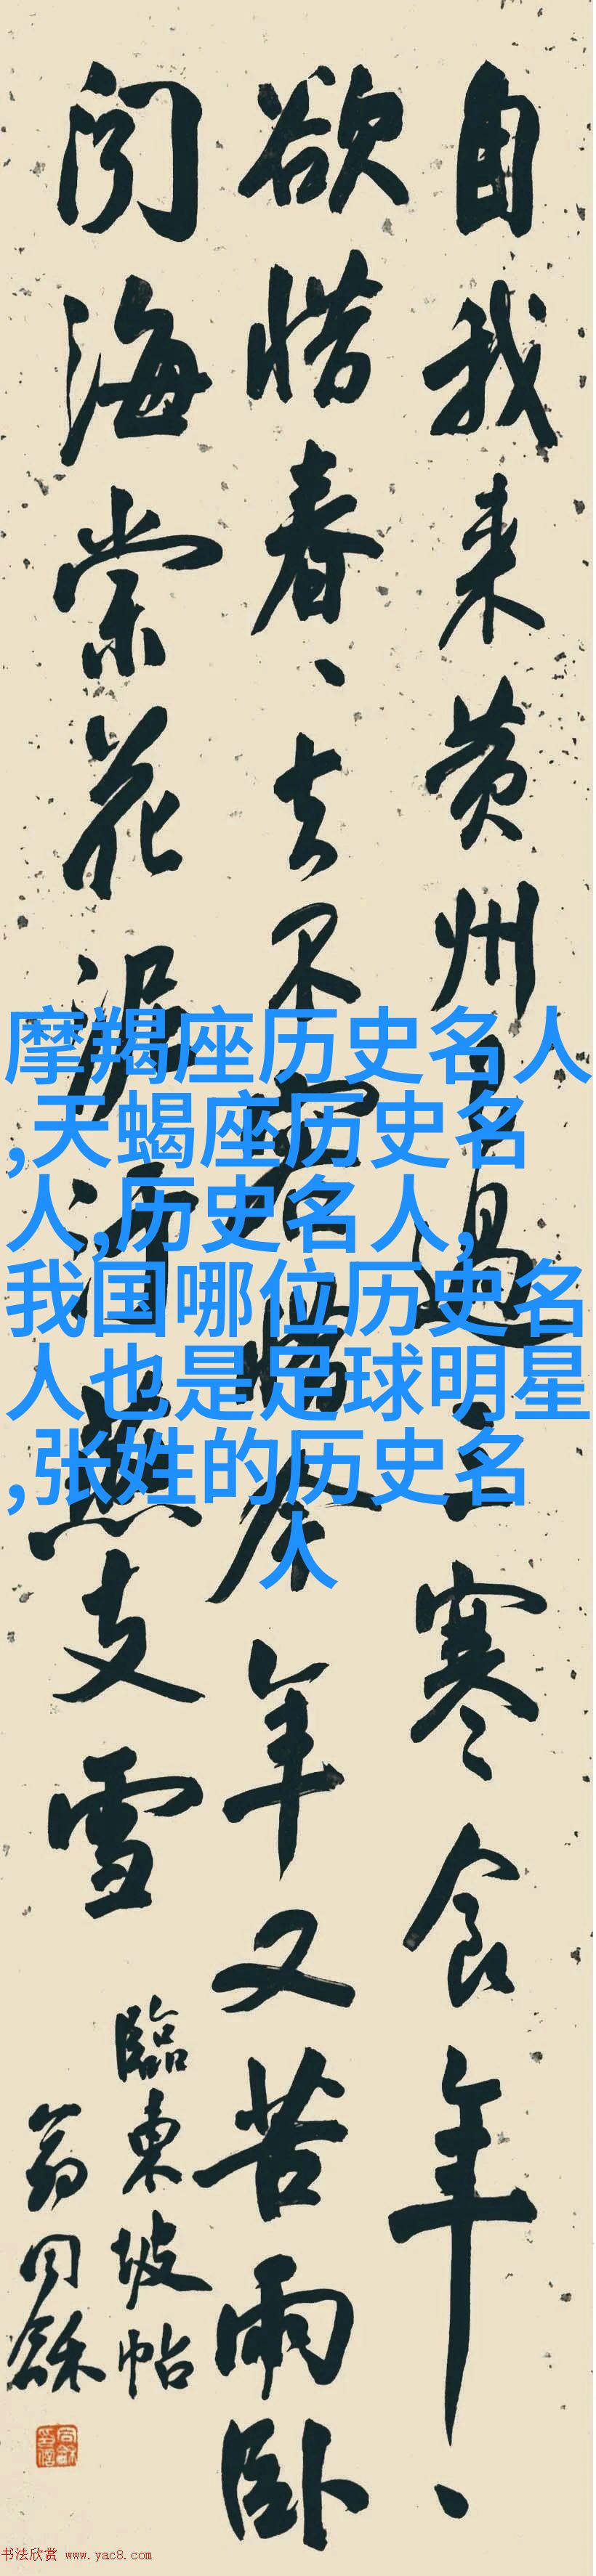 自我来黄州已過三寒食年、
欲惜春、去不容惜今年又苦雨卧
闻海棠花泥污燕支雪
臨東坡帖
翁同龢
摩羯座历史名人
,天蝎座历史名
人,历史名人,
我国哪位历史名
人也是足球明星
,张姓的历史名
人
书法欣赏 www.yac8.com